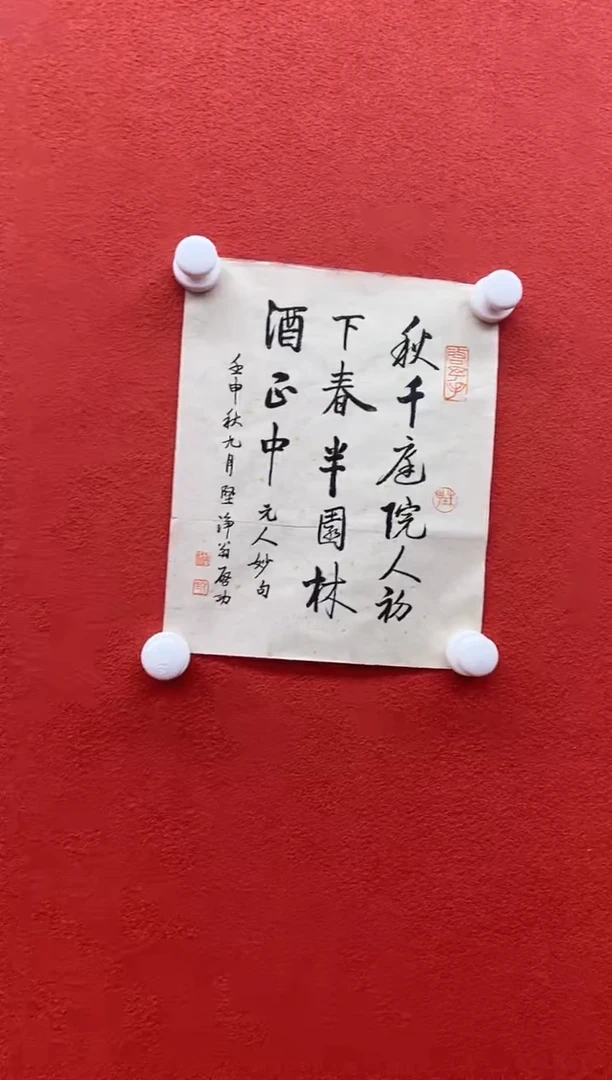 秋千庭院人初
下春半園林
酒正中
元人妙句
壬申秋九月堅淨翁啓功